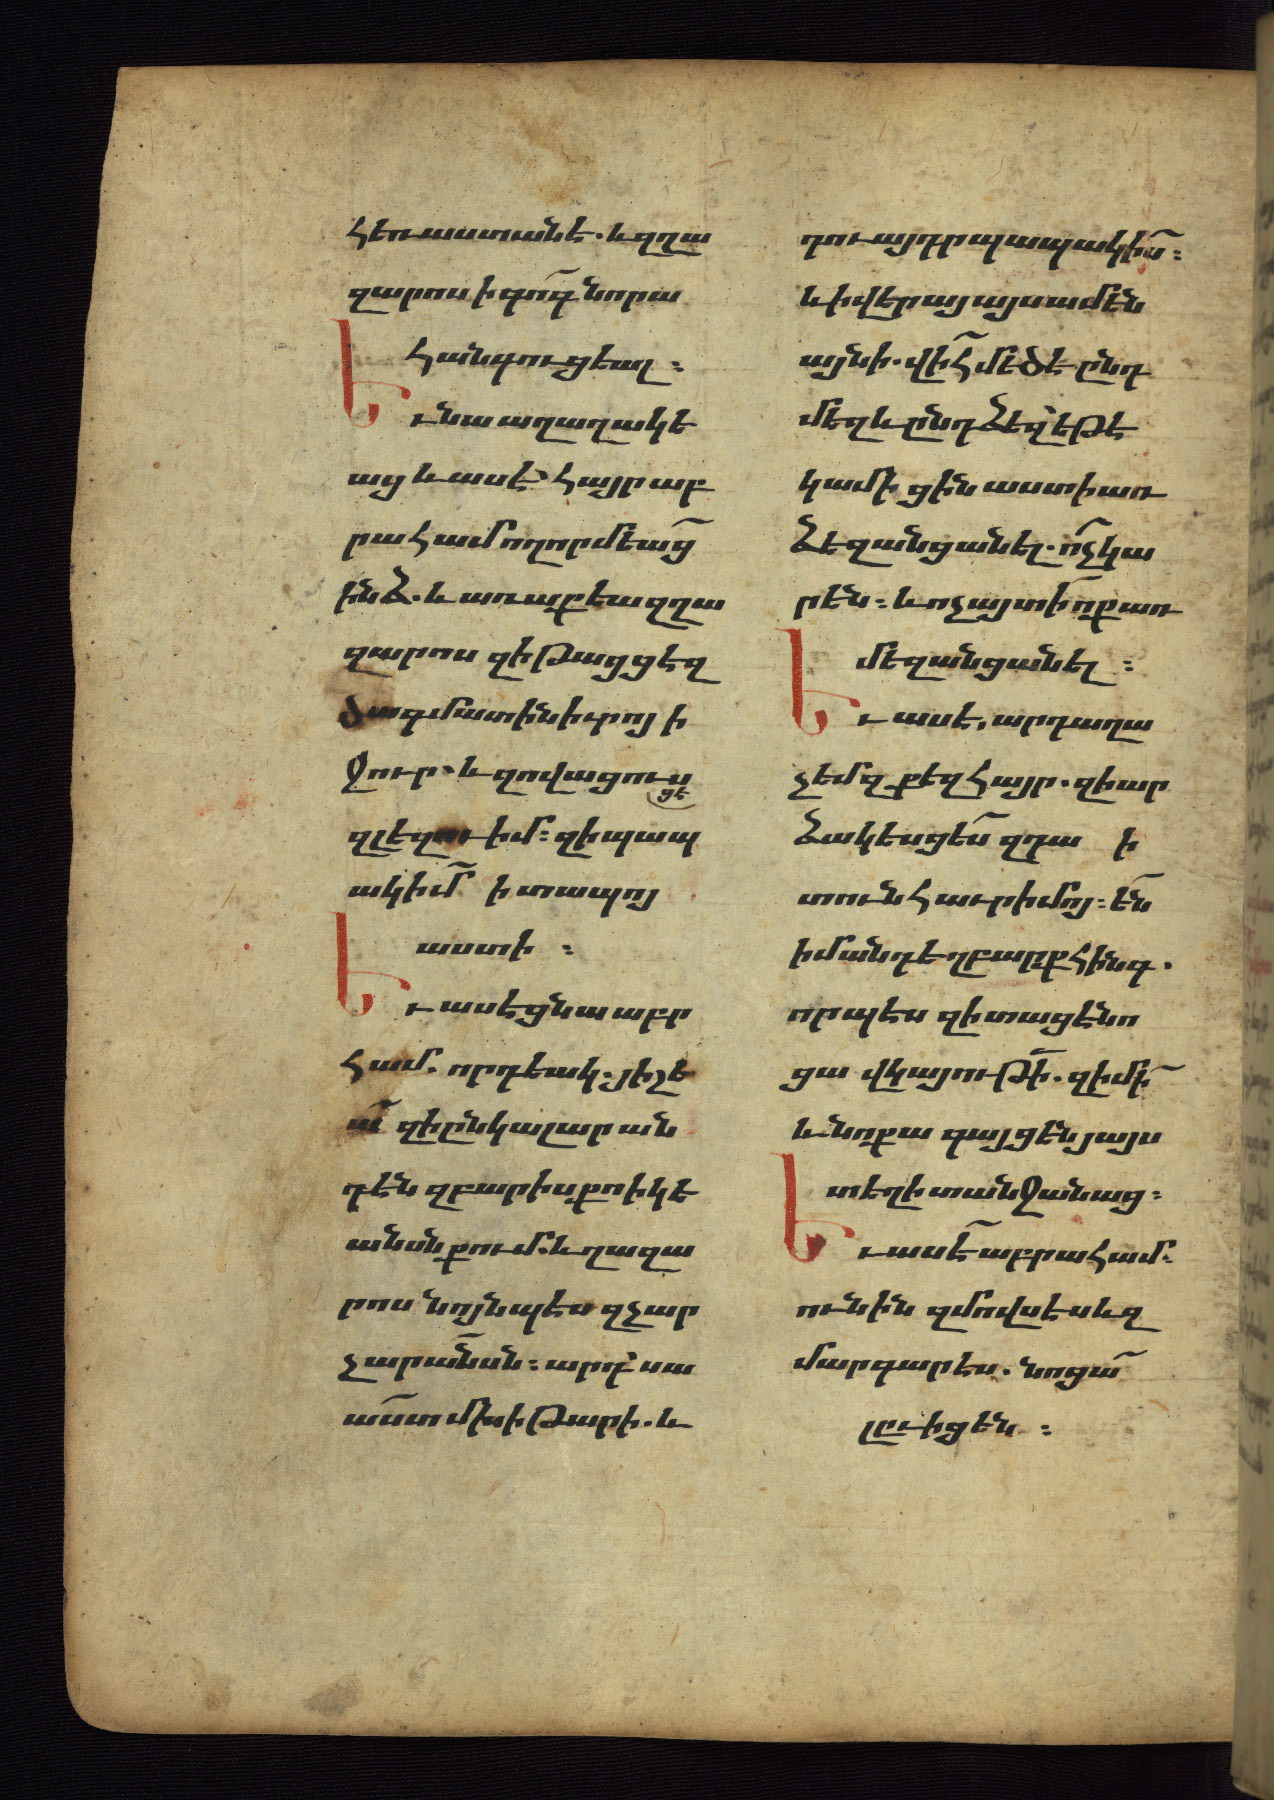 հեռաստանէ. և զղա
զարոս ի գոգ̃ նորա
հանգուցեալ :
Եւ նա աղաղակե
աց և ասէ՛ հայր աբ
րահամ ողորմեաց̃
ինձ. և առաքեա զղա
զարոս զի թացցէ զ
ծագ մատին իւրոյ ի
ջուր. և զովացուս
ցէ
զլեզու իմ : զի պապ
ակիմ̃ ի տապոյ
աստի :
Եւ ասէ ցնա աբր
համ. որդեակ. յիշե
ա̃ զի ընկալար ան
դէն զբարիս քո ի կե
անսն քում. և ղազա
րոս նոյնպէս զչար
չարանսն : արդ՛ սա
ա̃ստ մխիթարի. և
դու այդր պապակիս̃ :
և ի վերայ այսամեն
այնի. վիհ̃ մեծ է ընդ
մեզ և ընդ ձեզ՛ եթէ
կամիցին աստի առ
ձեզ անցանել. ո̃չ կա
րեն : և ոչ այտի ոք առ
մեզ անցանել :
Եւ ասէ, արդ աղա
չեմ զքեզ հայր. զի ար
ձակեսցես̃ զդա ի
տուն հաւր իմոյ : ե̃ն
իմ անդ եղբարք հինգ.
որպէս զի տացէ նո
ցա վկայութի̃. զի մի̃
և նոքա գայցեն յայս
տեղի տանջանաց :
Եւ ասէ̃ աբրահամ.
ունին զմովսէս և զ
մարգարէս. նոցա̃
լըւիցեն :